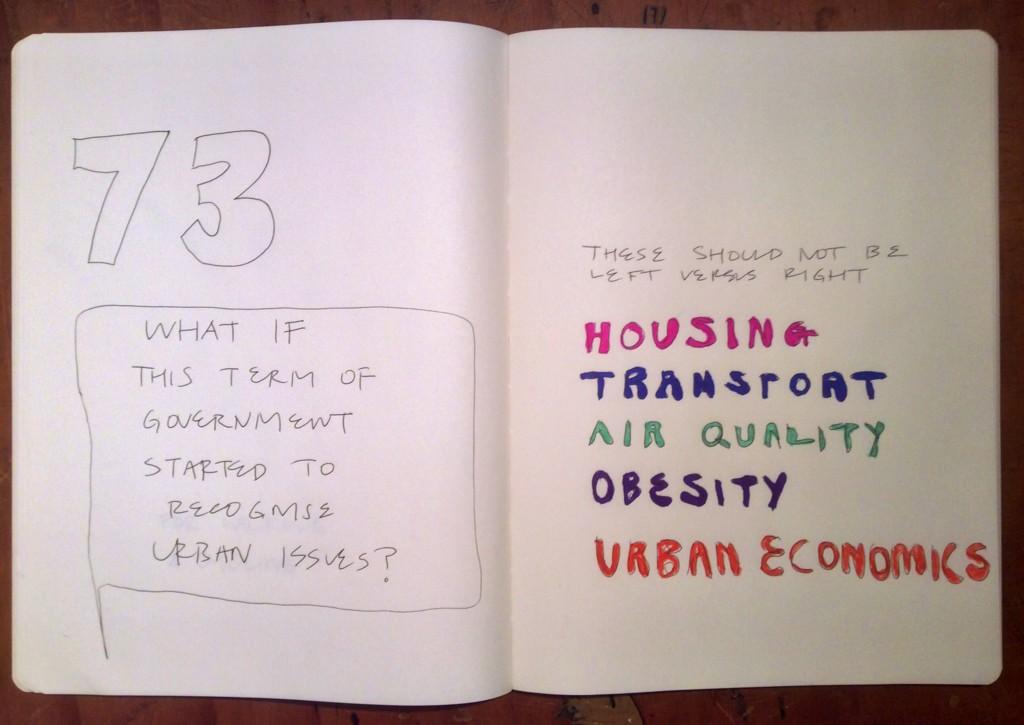 73
WHAT IF
THIS TERM OF
GOVERNMENT
STARTED TO
RECOGNISE
URBAN ISSUES?
THESE SHOULD NOT BE
LEFT VERSUS RIGHT
HOUSING
TRANSPORT
AIR QUALITY
OBESITY
URBAN ECONOMICS